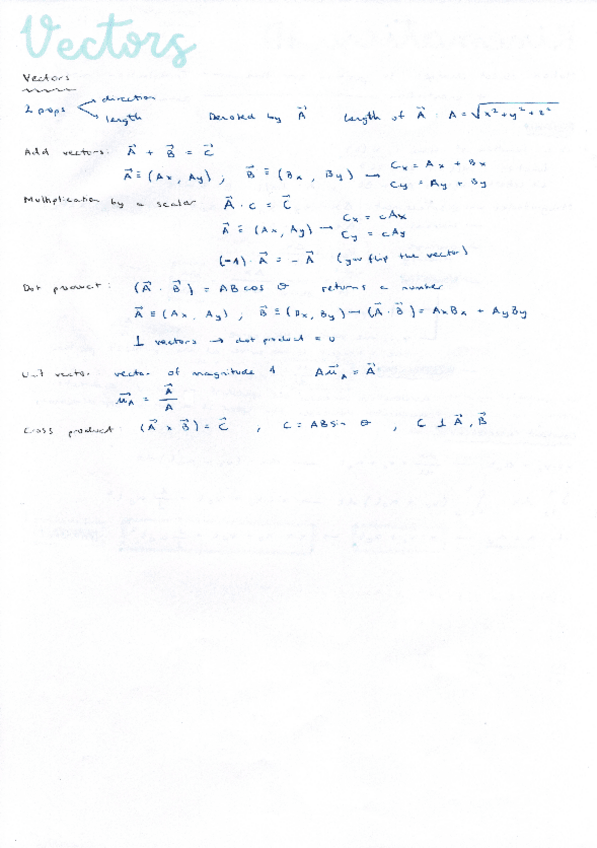 Vectors
Vectors
2 pops direction
length
Denoted by A⃗ length of A⃗ : A = √x²+y²+z²
Add vectors: A⃗ + B⃗ = C⃗
A⃗ ≡ (Ax, Ay) ; B⃗ ≡ (Bx, By) → Cx = Ax + Bx
Cy = Ay + By
Multiplication by a scalar A⃗ · c = C⃗
A⃗ ≡ (Ax, Ay) → Cx = cAx
Cy = cAy
(-1) · A⃗ = - A⃗ (you flip the vector)
Dot product: (A⃗ · B⃗) = AB cos θ returns a number
A⃗ ≡ (Ax, Ay) ; B⃗ ≡ (Bx, By) → (A⃗ · B⃗) = AxBx + AyBy
⊥ vectors → dot product = 0
Unit vector vector of magnitude 1 A u⃗A = A⃗
u⃗A = A⃗ / A
Cross product: (A⃗ × B⃗) = C⃗ , C = AB sin θ , C ⊥ A⃗, B⃗